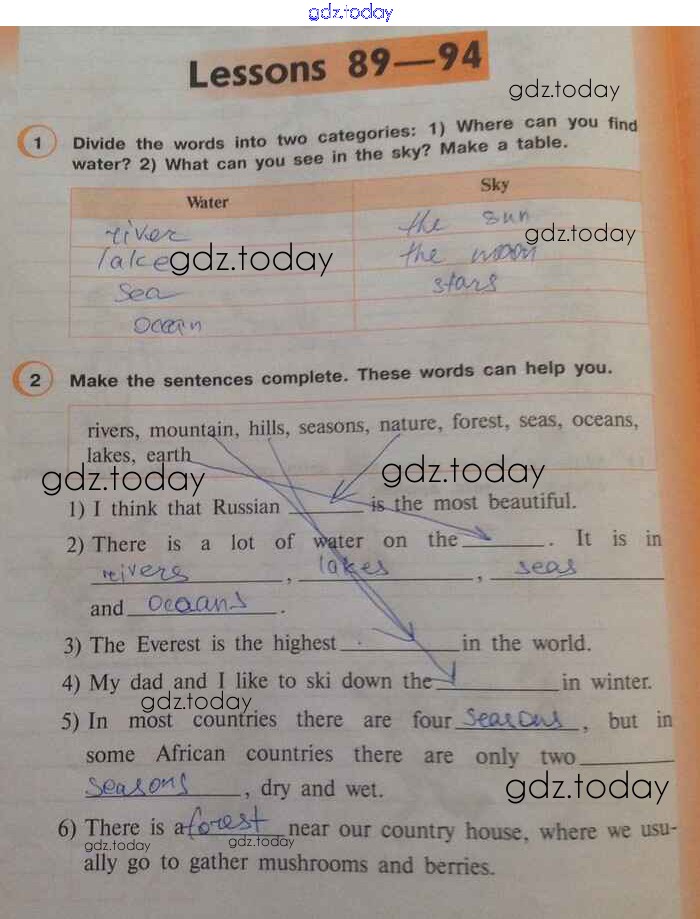 gdz.today
Lessons 89—94
gdz.today
1 Divide the words into two categories: 1) Where can you find
water? 2) What can you see in the sky? Make a table.
Water Sky
river the sun
gdz.today
lake the moon
gdz.today
sea stars
ocean
2 Make the sentences complete. These words can help you.
rivers, mountain, hills, seasons, nature, forest, seas, oceans,
lakes, earth
gdz.today gdz.today
1) I think that Russian ______ is the most beautiful.
2) There is a lot of water on the ______. It is in
rivers, lakes, seas
and oceans.
3) The Everest is the highest ______ in the world.
4) My dad and I like to ski down the ______ in winter.
gdz.today
5) In most countries there are four seasons, but in
some African countries there are only two
seasons, dry and wet.
gdz.today
6) There is a forest near our country house, where we usu-
gdz.today gdz.today
ally go to gather mushrooms and berries.